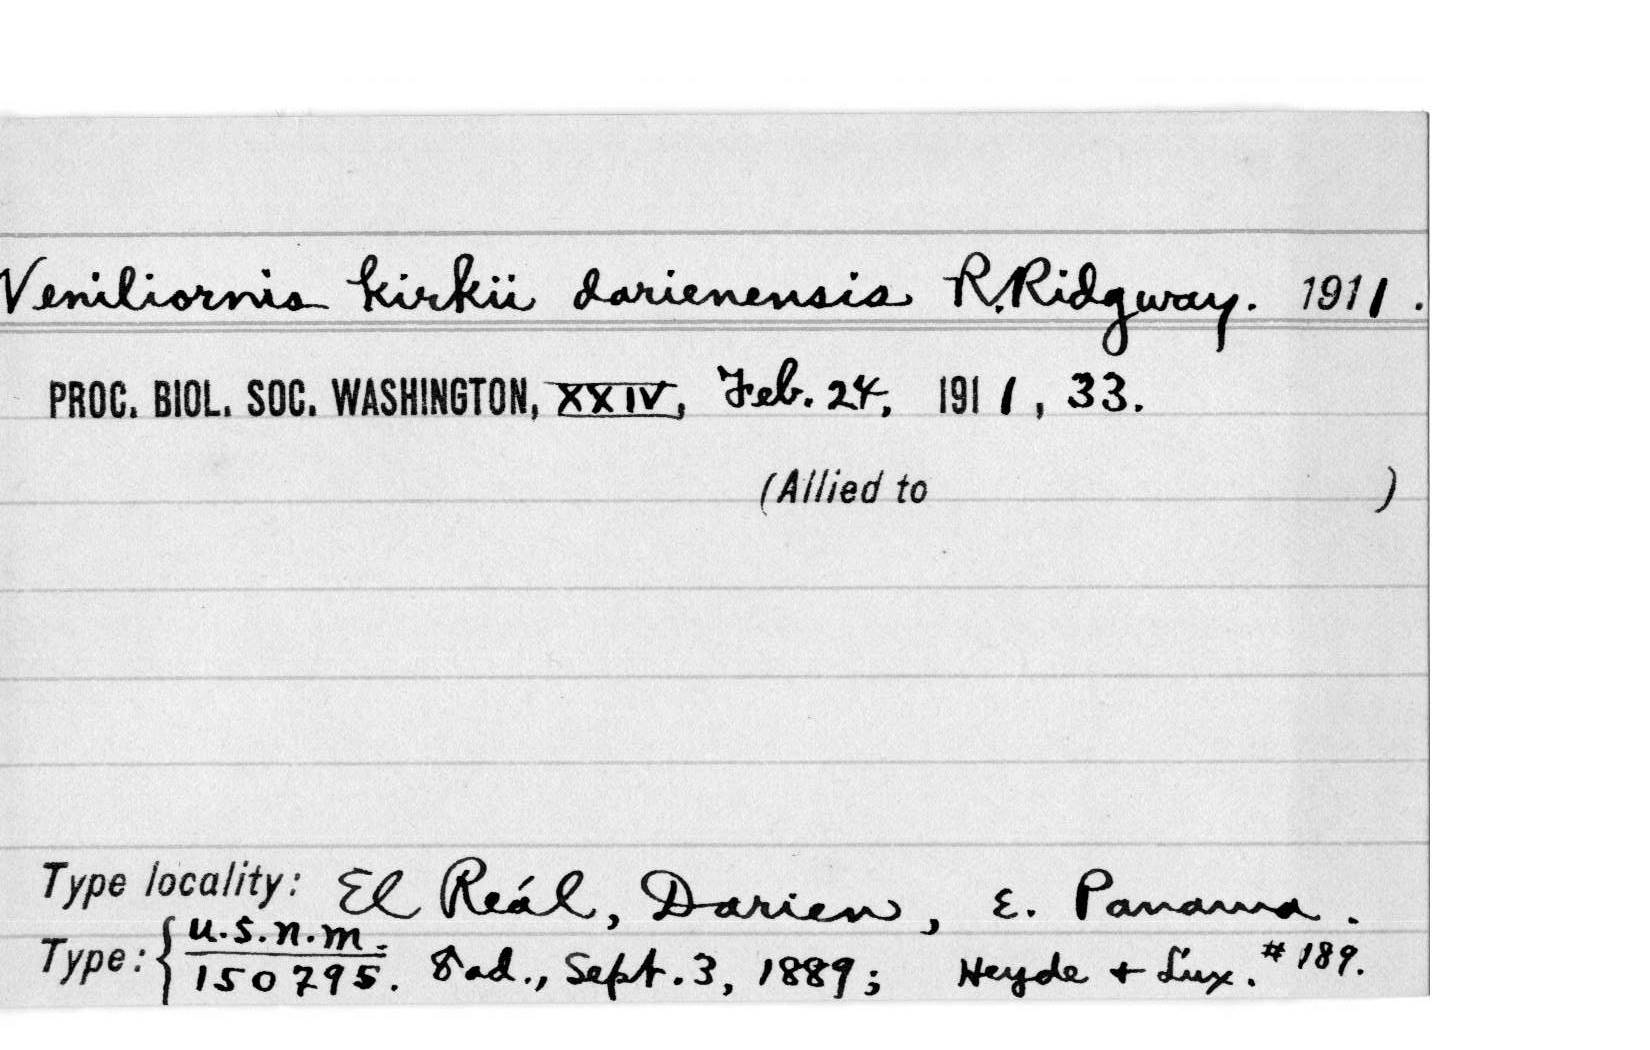 Veniliornis kirkii darienensis R. Ridgway. 1911.
PROC. BIOL. SOC. WASHINGTON, XXIV, Feb. 24, 1911, 33.
(Allied to )
Type locality: El Reál, Darien, E. Panama.
U.S.N.M.
Type: 150795. ad., Sept. 3, 1889; Heyde + Lux. #189.